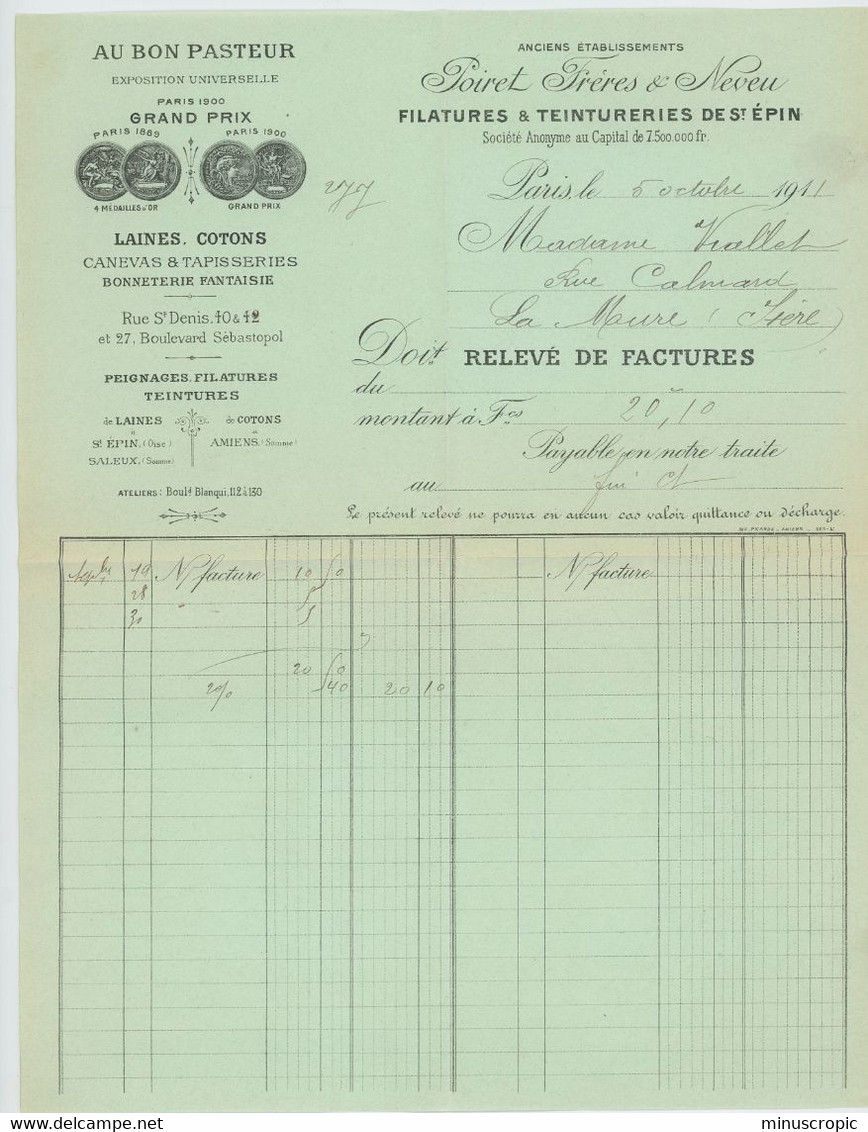 AU BON PASTEUR
EXPOSITION UNIVERSELLE
PARIS 1900
GRAND PRIX
PARIS 1889 PARIS 1900
4 MÉDAILLES D'OR GRAND PRIX
LAINES, COTONS
CANEVAS & TAPISSERIES
BONNETERIE FANTAISIE
Rue St Denis, 10 & 12
et 27, Boulevard Sébastopol
PEIGNAGES, FILATURES
TEINTURES
de LAINES de COTONS
à à
St ÉPIN, (Oise) AMIENS, (Somme)
SALEUX, (Somme)
ATELIERS : Boul.d Blanqui, 112 à 130
ANCIENS ÉTABLISSEMENTS
Poiret Frères & Neveu
FILATURES & TEINTURERIES DE ST ÉPIN
Société Anonyme au Capital de 7.500.000 fr.
277
Paris, le 5 octobre 1911
Madame Viallet
Rue Calmard
La Mure (Isère)
Doit RELEVÉ DE FACTURES
du
montant à Fcs 20,10
Payable en notre traite
au fin Ct
Le présent relevé ne pourra en aucun cas valoir quittance ou décharge.
Sepbre 19 N/ facture 10 50 N/ facture
28 " 5
30 5
20 50
2% 40 20 10
minuscropic